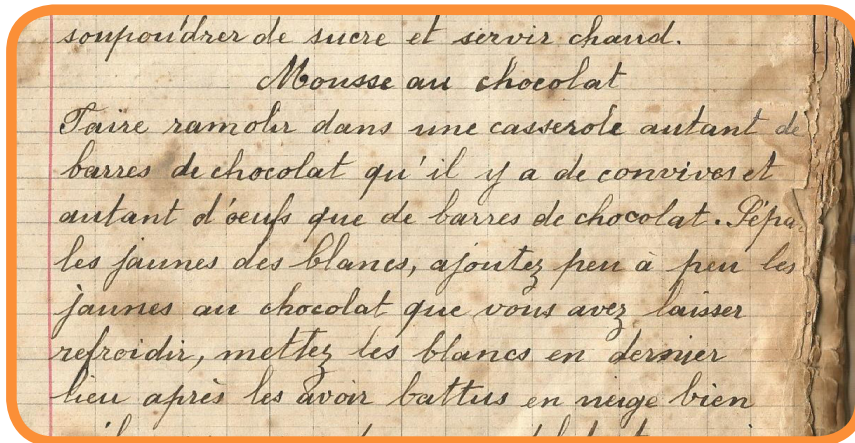 soupoudrer de sucre et servir chaud.
Mousse au chocolat
Faire ramolir dans une casserole autant de
barres de chocolat qu'il y a de convives et
autant d'oeufs que de barres de chocolat. Sépa
les jaunes des blancs, ajoutez peu à peu les
jaunes au chocolat que vous avez laisser
refroidir, mettez les blancs en dernier
lieu après les avoir battus en neige bien